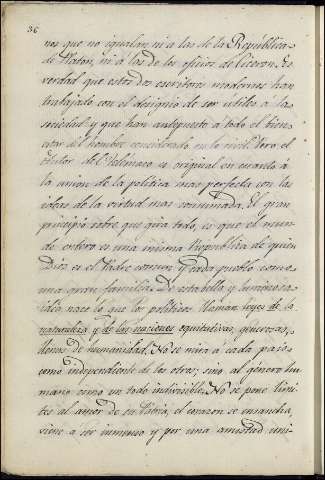 36
nos que no igualan, ni a las de la República
de Platon, ni á las de los oficios de Ciceron. Es
verdad que estos dos escritores modernos han
trabajado con el designio de ser utiles á la
sociedad y que han antepuesto á todo el bien
estar del hombre considerado en lo civil. Pero el
autor del Telemaco es original en cuanto á
la union de la politica mas perfecta con las
ideas de la virtud mas consumada. El gran
principio sobre que gira todo, es que el mun
do entero es una misma Republica de quien
Dios es el Padre comun y cada pueblo como
una gran familia. De esta bella y luminosa
idea nace lo que los politicos llaman leyes de la
naturaleza y de las naciones equitativas, generosas,
llenas de humanidad. No se mira á cada pais
como independiente de los otros, sino al género hu
mano como un todo indivisible. No se pone limi
tes al amor de su Patria, el corazon se ensancha,
viene a ser inmenso y por una amistad uni